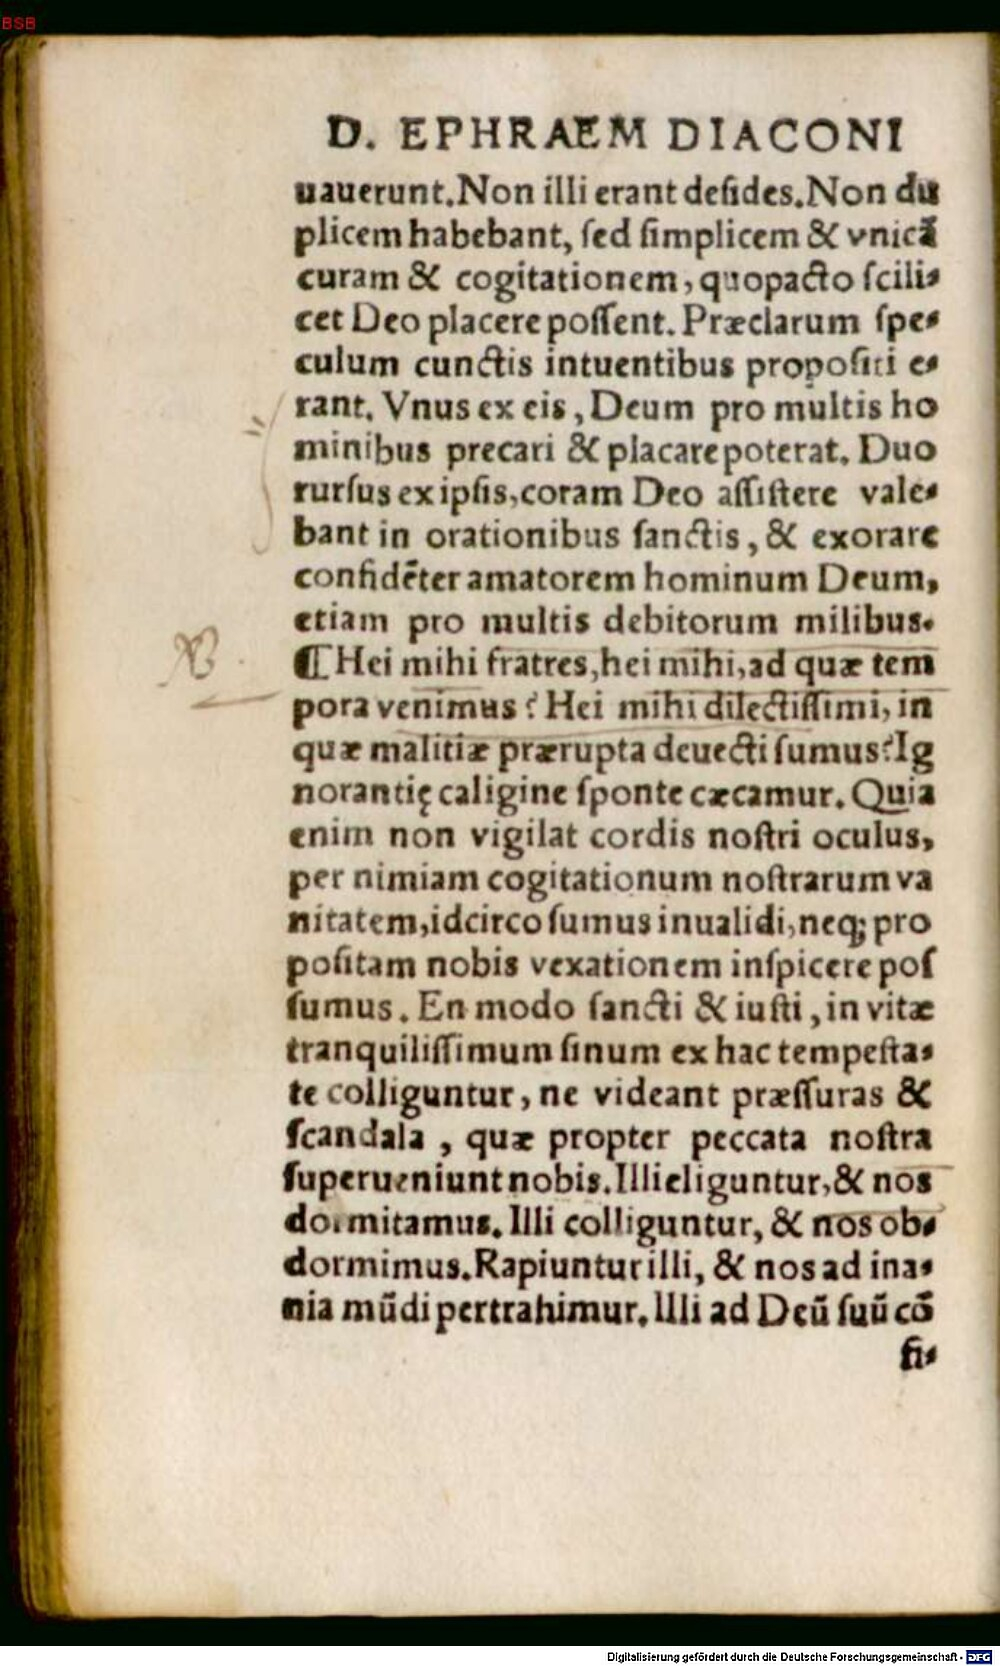 BSB
D. EPHRAEM DIACONI
uauerunt. Non illi erant desides. Non du
plicem habebant, sed simplicem & vnicã
curam & cogitationem, quopacto scili-
cet Deo placere possent. Præclarum spe-
culum cunctis intuentibus propositi e-
rant. Vnus ex eis, Deum pro multis ho
minibus precari & placare poterat. Duo
rursus ex ipsis, coram Deo assistere vale-
bant in orationibus sanctis, & exorare
confidẽter amatorem hominum Deum,
etiam pro multis debitorum milibus.
¶ Hei mihi fratres, hei mihi, ad quæ tem
pora venimus? Hei mihi dilectissimi, in
quæ malitiæ prærupta deuecti sumus? Ig
norantię caligine sponte cæcamur. Quia
enim non vigilat cordis nostri oculus,
per nimiam cogitationum nostrarum va
nitatem, idcirco sumus inualidi, neq; pro
positam nobis vexationem inspicere pos
sumus. En modo sancti & iusti, in vitæ
tranquilissimum sinum ex hac tempesta-
te colliguntur, ne videant præssuras &
scandala, quæ propter peccata nostra
superueniunt nobis. Illi eliguntur, & nos
dormitamus. Illi colliguntur, & nos ob-
dormimus. Rapiuntur illi, & nos ad ina-
nia mũdi pertrahimur. Illi ad Deũ suũ cõ
fi-
Digitalisierung gefördert durch die Deutsche Forschungsgemeinschaft - DFG